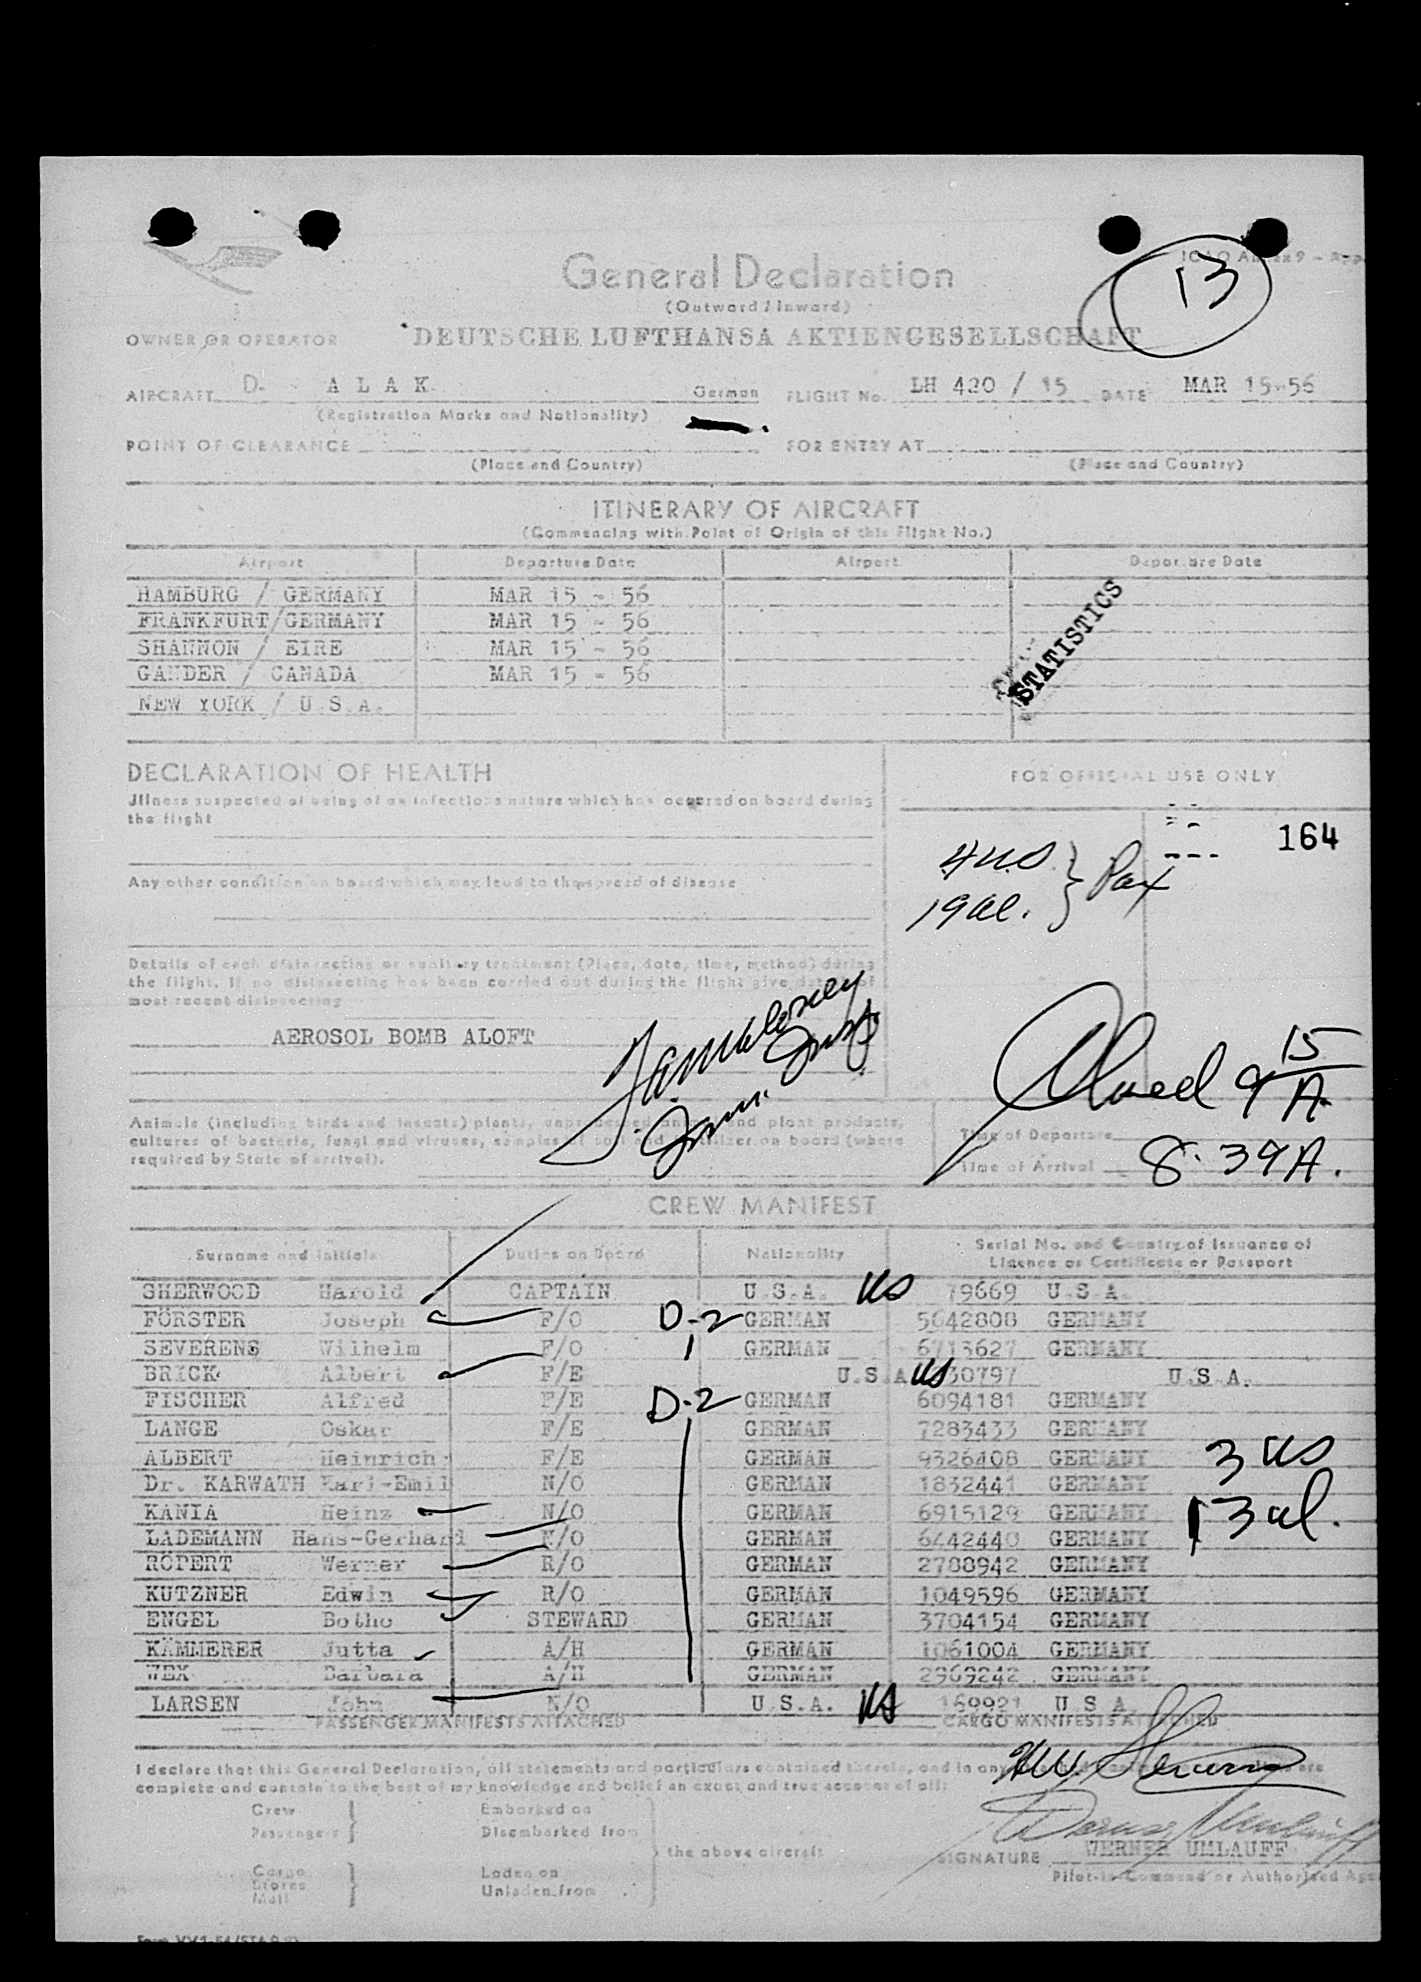 13
General Declaration
(Outward / Inward)
OWNER OR OPERATOR DEUTSCHE LUFTHANSA AKTIENGESELLSCHAFT
AIRCRAFT D. A L A K German FLIGHT No. LH 420 / 15 DATE MAR 15-56
(Registration Marks and Nationality)
POINT OF CLEARANCE FOR ENTRY AT
(Place and Country) (Place and Country)
ITINERARY OF AIRCRAFT
(Commencing with Point of Origin of this Flight No.)
Airport Departure Date Airport Departure Date
HAMBURG / GERMANY MAR 15 - 56
FRANKFURT/GERMANY MAR 15 - 56
SHANNON / EIRE MAR 15 - 56
GANDER / CANADA MAR 15 - 56
NEW YORK / U.S.A.
STATISTICS
DECLARATION OF HEALTH
FOR OFFICIAL USE ONLY
Illness suspected of being of an infectious nature which has occured on board during
the flight
164
4 US
19 al. } Pax
Any other condition on board which may lead to the spread of disease
Details of each disinsecting or sanitary treatment (Place, date, time, method) during
the flight. If no disinsecting has been carried out during the flight give details of
most recent disinsecting
AEROSOL BOMB ALOFT
9 15 A.
Animals (including birds and insects) plants, unprocessed animal and plant products,
cultures of bacteria, fungi and viruses, samples of soil and fertilizer on board (where
required by State of arrival).
Time of Departure
Time of Arrival 8:39A.
CREW MANIFEST
Surname and Initials Duties on Board Nationality Serial No. and Country of Issuance of
Licence or Certificate or Passport
SHERWOOD Harold CAPTAIN U.S.A. US 79669 U.S.A.
FÖRSTER Joseph F/O D-2 GERMAN 5642808 GERMANY
SEVERENS Wilhelm F/O GERMAN 6713627 GERMANY
BRICK Albert F/E U.S.A US 30797 U.S.A.
FISCHER Alfred F/E D-2 GERMAN 6094181 GERMANY
LANGE Oskar F/E GERMAN 7283433 GERMANY
ALBERT Heinrich F/E GERMAN 9326408 GERMANY
3 US
Dr. KARWATH Karl-Emil N/O GERMAN 1832441 GERMANY
KANIA Heinz N/O GERMAN 6915129 GERMANY
13 al.
LADEMANN Hans-Gerhard N/O GERMAN 6442440 GERMANY
RÖPERT Werner R/O GERMAN 2788942 GERMANY
KUTZNER Edwin R/O GERMAN 1049596 GERMANY
ENGEL Botho STEWARD GERMAN 3704154 GERMANY
KÄMMERER Jutta A/H GERMAN 1061004 GERMANY
WEX Barbara A/H GERMAN 2969242 GERMANY
LARSEN John N/O U.S.A. US 169921 U S A
PASSENGER MANIFESTS ATTACHED CARGO MANIFESTS ATTACHED
I declare that this General Declaration, all statements and particulars contained therein, and in any
complete and contain to the best of my knowledge and belief an exact and true account of all:
Crew
Passengers
Embarked on
Disembarked from
the above aircraft
Cargo
Stores
Mail
Loaded on
Unladen from
SIGNATURE WERNER UMLAUFF
Pilot-in-Command or Authorised Age